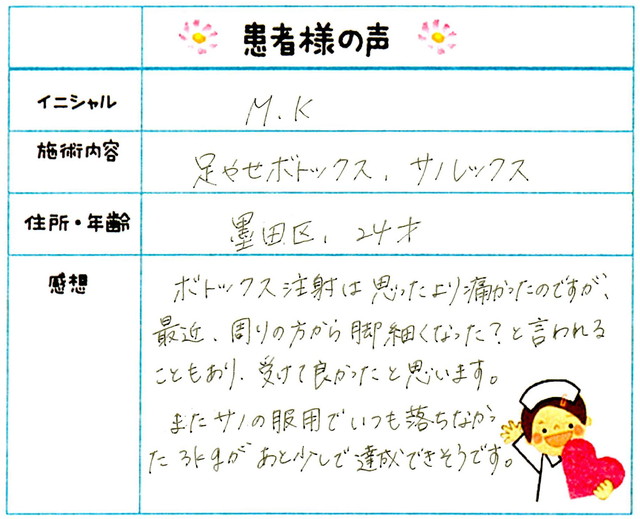 患者様の声
イニシャル
M.K
施術内容
足やせボトックス、サノレックス
住所・年齢
墨田区、24才
感想
ボトックス注射は思ったより痛かったのですが、
最近、周りの方から脚細くなった？と言われる
こともあり、受けて良かったと思います。
またサノの服用でいつも落ちなかっ
た3kgがあと少しで達成できそうです。